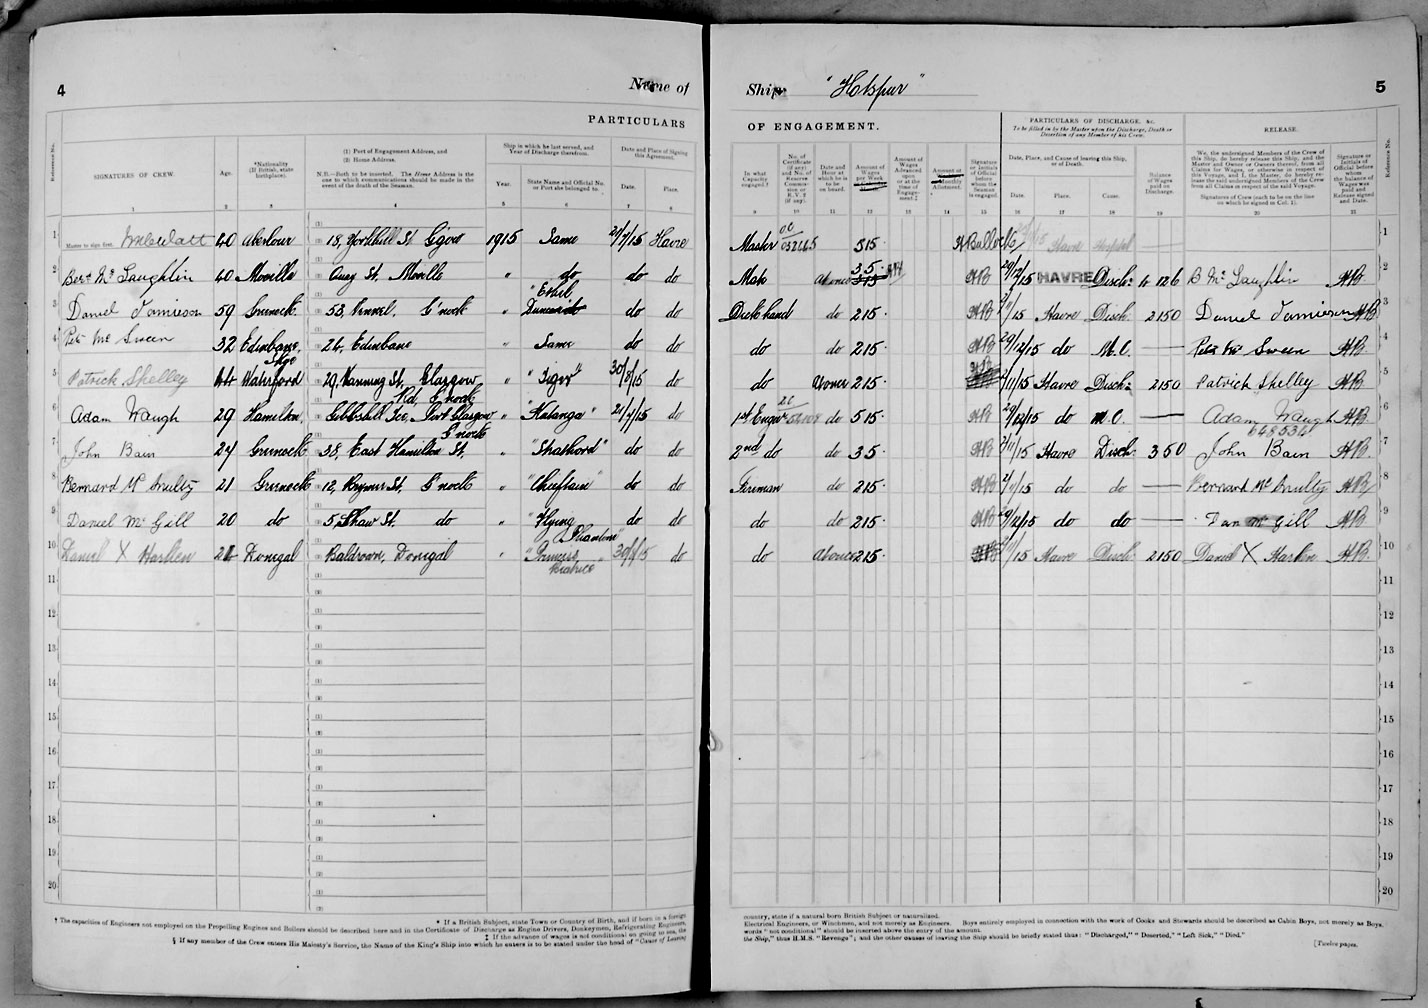 4
Name of
Ship "Hotspur"
5
PARTICULARS
OF ENGAGEMENT.
Reference No.
SIGNATURES OF CREW.
Age.
*Nationality (If British, state birthplace).
(1) Port of Engagement Address, and
(2) Home Address.
N.B.—Both to be inserted. The Home Address is the one to which communications should be made in the event of the death of the Seaman.
Ship in which he last served, and Year of Discharge therefrom.
Year.
State Name and Official No. or Port she belonged to.
Date and Place of Signing this Agreement.
Date.
Place.
In what Capacity engaged.†
No. of Certificate (if any) and No. of Reserve Commission or R.V.2 (if any).
Date and Hour at which he is to be on board.
Amount of Wages per Week
Amount of Wages Advanced upon or at the time of Engagement.‡
Amount of Monthly Allotment.
Signature or Initials of Official before whom the Seaman is engaged.
PARTICULARS OF DISCHARGE, &c.
To be filled in by the Master upon the Discharge, Death or Desertion of any Member of his Crew.
Date, Place, and Cause of leaving this Ship, or of Death.
Date.
Place.
Cause.
Balance of Wages paid on Discharge.
RELEASE.
We, the undersigned Members of the Crew of this Ship, do hereby release this Ship, and the Master and Owner or Owners thereof, from all Claims for Wages, or otherwise in respect of this Voyage, and I, the Master, do hereby release the undersigned Members of the Crew from all Claims in respect of the said Voyage.
Signatures of Crew (each to be on the line on which he signed in Col. 1).
Signature or Initials of Official before whom the balance of Wages was paid and Release signed and Date.
Reference No.
1 2 3 4 5 6 7 8 9 10 11 12 13 14 15 16 17 18 19 20 21
1 Master to sign first. 40 Aberlour 18, Yorkhill St. 1915 Same 21/7/15 Havre Master 515 H Bullock Havre Hospital — 1
2 Bert Mc Laughlin 40 Moville Quay St. Moville " do do do Mate 35 HB 29/12/15 HAVRE Disch: 126 B Mc Laughlin HB 2
3 Daniel Jamieson 59 Greenock 53, G'nock " Ethel do do Deckhand do 215 HB /11/15 Havre Disch. 2150 Daniel Jamieson HB 3
4 Peter Mc Sween 32 Edinbane, Skye 24, Edinbane " Same do do do do 215 HB 29/12/15 do M.C. — Peter Mc Sween HB 4
5 Patrick Shelley 44 Waterford 29, Manning St, Glasgow " "Tiger" 30/8/15 do do 215 HB 2/11/15 Havre Disch: 2150 Patrick Shelley HB 5
6 Adam Waugh 29 Hamilton. Gibbshill Port Glasgow Rd, G'nock " "Katanga" 21/7/15 do 1st Engnr do 515 HB 29/12/15 do M.C. — Adam Waugh HB 6
7 John Bain 24 Greenock 38, East Hamilton St. G'nock " "Strathord" do do 2nd do do 35 HB 2/11/15 Havre Disch 350 648534 John Bain HB 7
8 Bernard Mc Anulty 21 Greenock 12, St. G'nock " "Chieftain" do do Fireman do 215 HB 2/11/15 do do — Bernard Mc Anulty HB 8
9 Daniel Mc Gill 20 do 5, Shaw St. do " "Flying Phantom" do do do do 215 HB 29/12/15 do do — Dan Mc Gill HB 9
10 Daniel X Harkin Donigal Donigal " "Princess Beatrice" do do at once 215 HB /15 Havre Disch 2150 Daniel X Harkin HB 10
11 11
12 12
13 13
14 14
15 15
16 16
17 17
18 18
19 19
20 20
† The capacities of Engineers not employed on the Propelling Engines and Boilers should be described here and in the Certificate of Discharge as Engine Drivers, Donkeymen, Refrigerating Engineers,
* If a British Subject, state Town or Country of Birth, and if born in a foreign
‡ If the advance of wages is not conditional on going to sea, the
§ If any member of the Crew enters His Majesty's Service, the Name of the King's Ship into which he enters is to be stated under the head of "Cause of Leaving
country, state if a natural born British Subject or naturalized.
Electrical Engineers, or Winchmen, and not merely as Engineers. Boys entirely employed in connection with the work of Cooks and Stewards should be described as Cabin Boys, not merely as Boys.
words "not conditional" should be inserted above the entry of the amount.
the Ship," thus H.M.S. "Revenge"; and the other causes of leaving the Ship should be briefly stated thus: "Discharged," "Deserted," "Left Sick," "Died."
[Twelve pages.